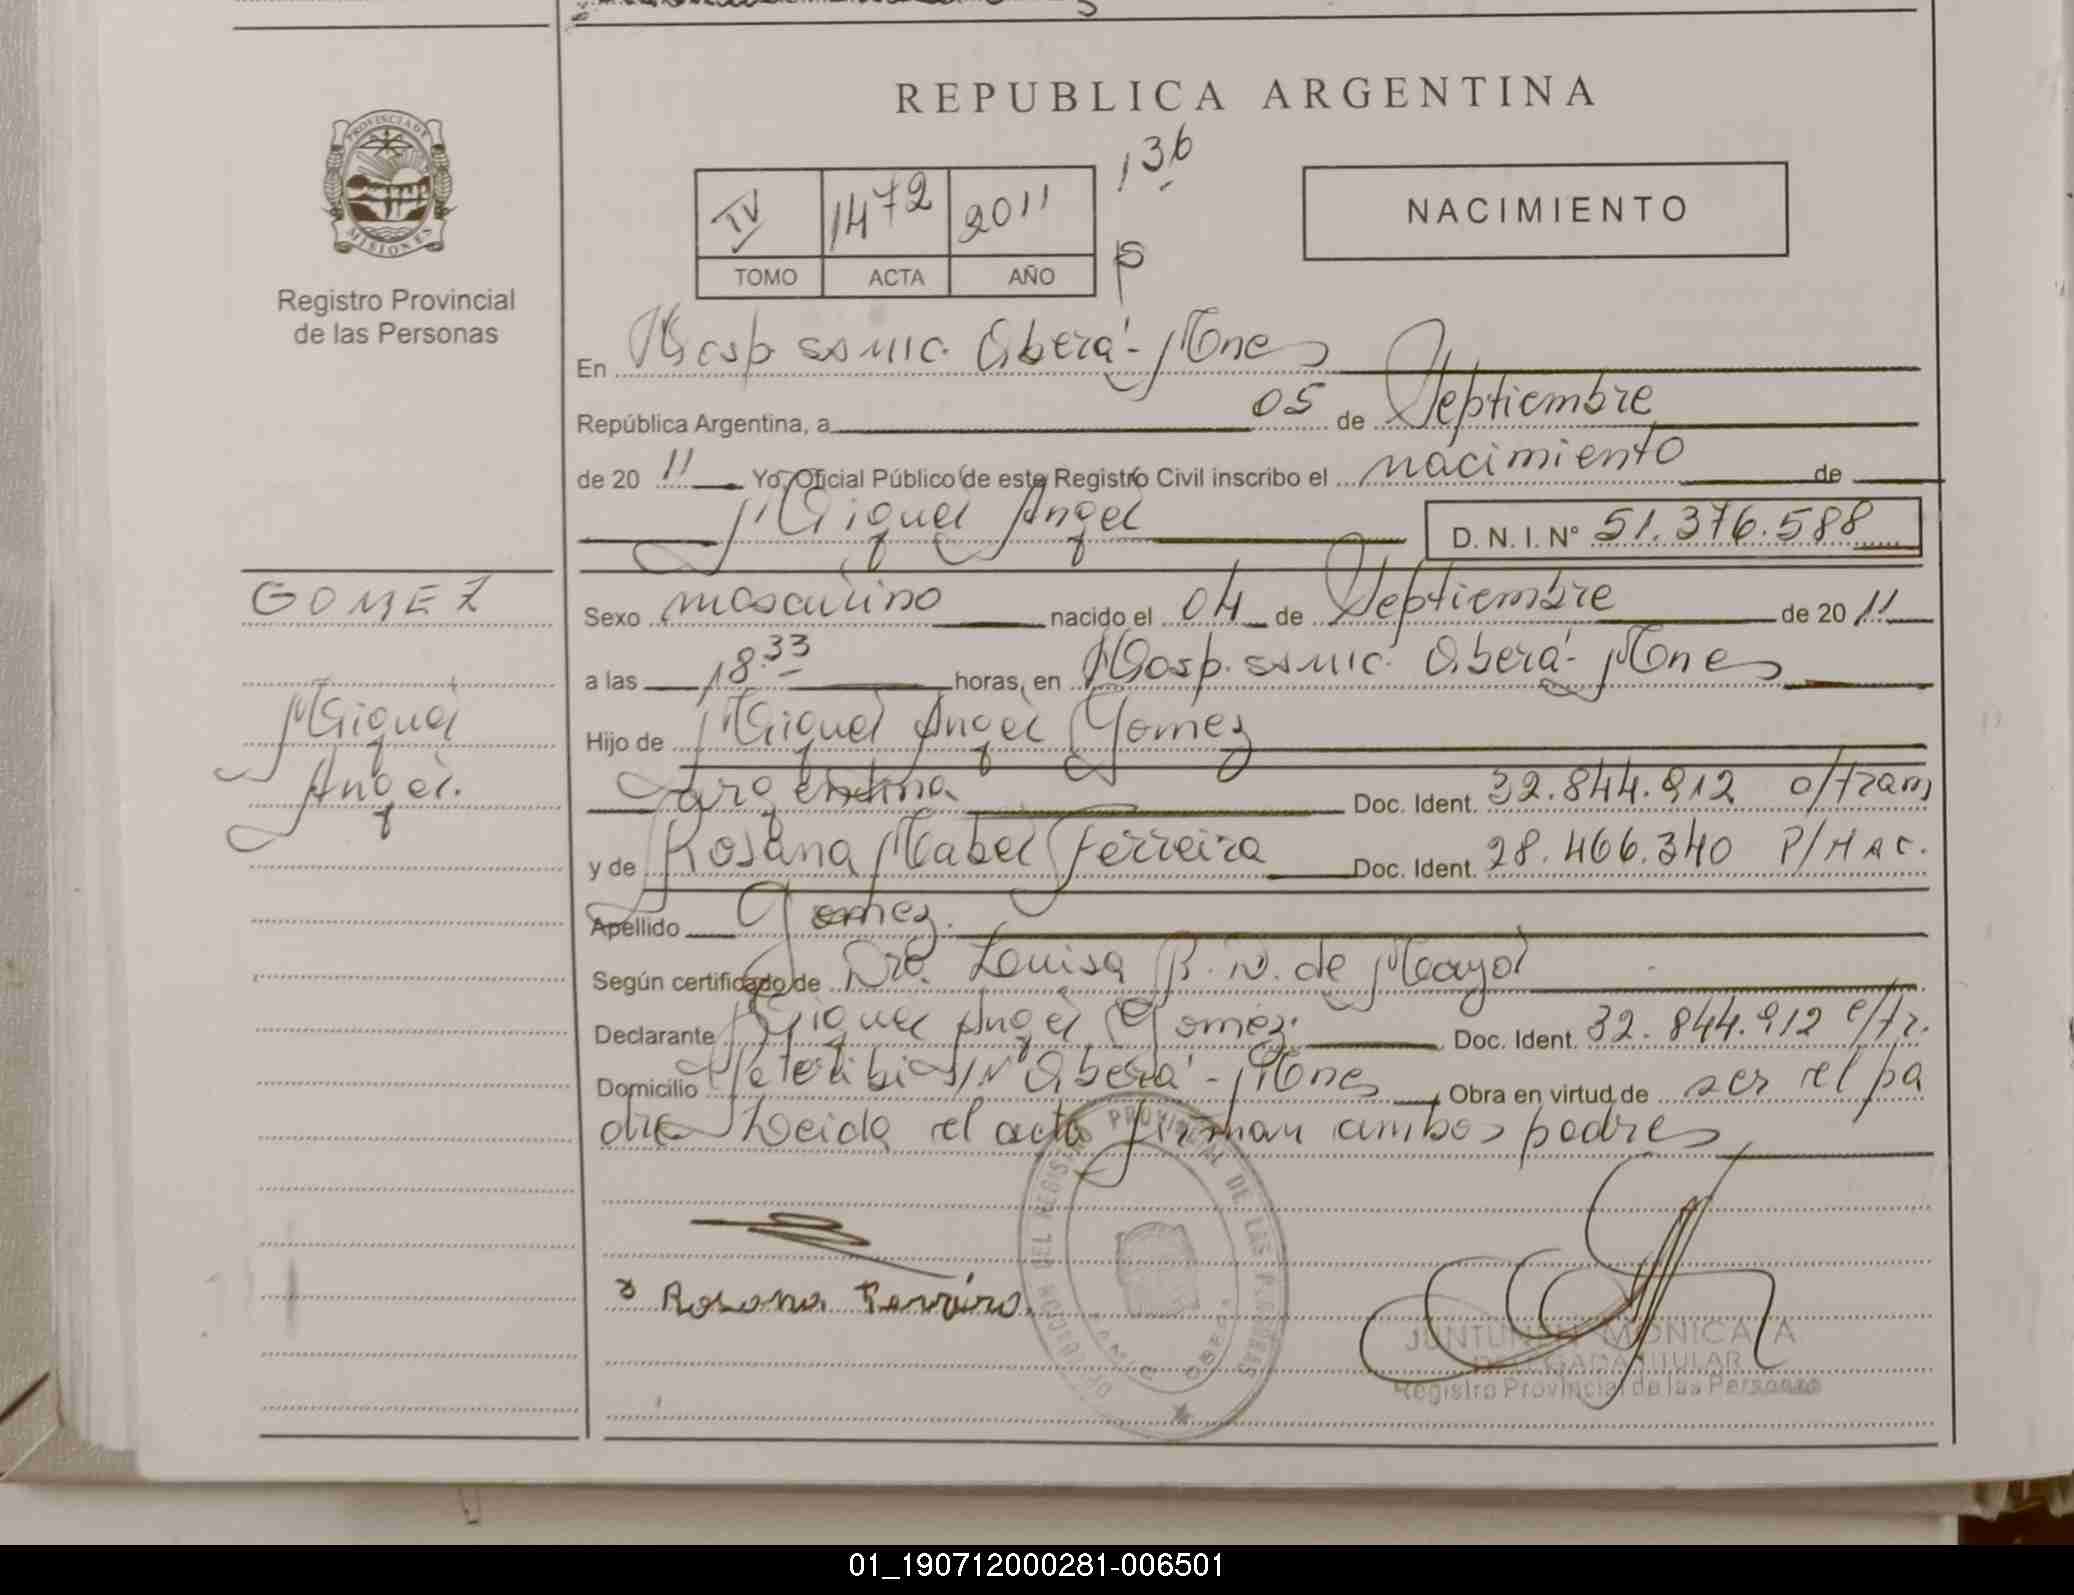 REPUBLICA ARGENTINA
PROVINCIA DE
MISIONES
Registro Provincial
de las Personas
136
IV 1472 2011
TOMO ACTA AÑO
NACIMIENTO
En Hosp. SAMIC. Oberá - Mnes
República Argentina, a 05 de Septiembre
de 20 11 Yo, Oficial Público de este Registro Civil inscribo el nacimiento de
Miguel Angel D. N. I. N° 51.376.588
GOMEZ
Miguel
Angel.
Sexo masculino nacido el 04 de Septiembre de 20 11
a las 18.33 horas, en Hosp. SAMIC. Oberá - Mnes
Hijo de Miguel Angel Gomez
Argentina Doc. Ident. 32.844.912 o/tram
y de Rosana Mabel Ferreira Doc. Ident. 28.466.340 P/NAC.
Apellido Gomez.
Según certificado de Dra. Louisa B. N. de Mayol
Declarante Miguel Angel Gomez. Doc. Ident. 32.844.912 e/tr.
Domicilio S/N° Oberá - Mnes Obra en virtud de ser el pa
dre Leida el acta firman ambos padres
DIRECCION DEL REGISTRO PROVINCIAL DE LAS PERSONAS
SAMIC OBERA
Rosana Ferreira.
JUNTUNEN MONICA A
DELEGADA TITULAR
Registro Provincial de las Personas
01_190712000281-006501